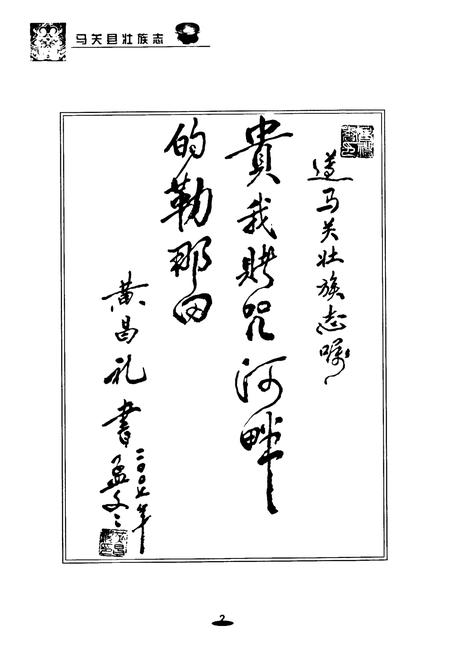 马关县壮族志
遵马关壮族志嘱
貴我賭咒河畔
的勒那田
黄昌礼書
二〇〇七年
2